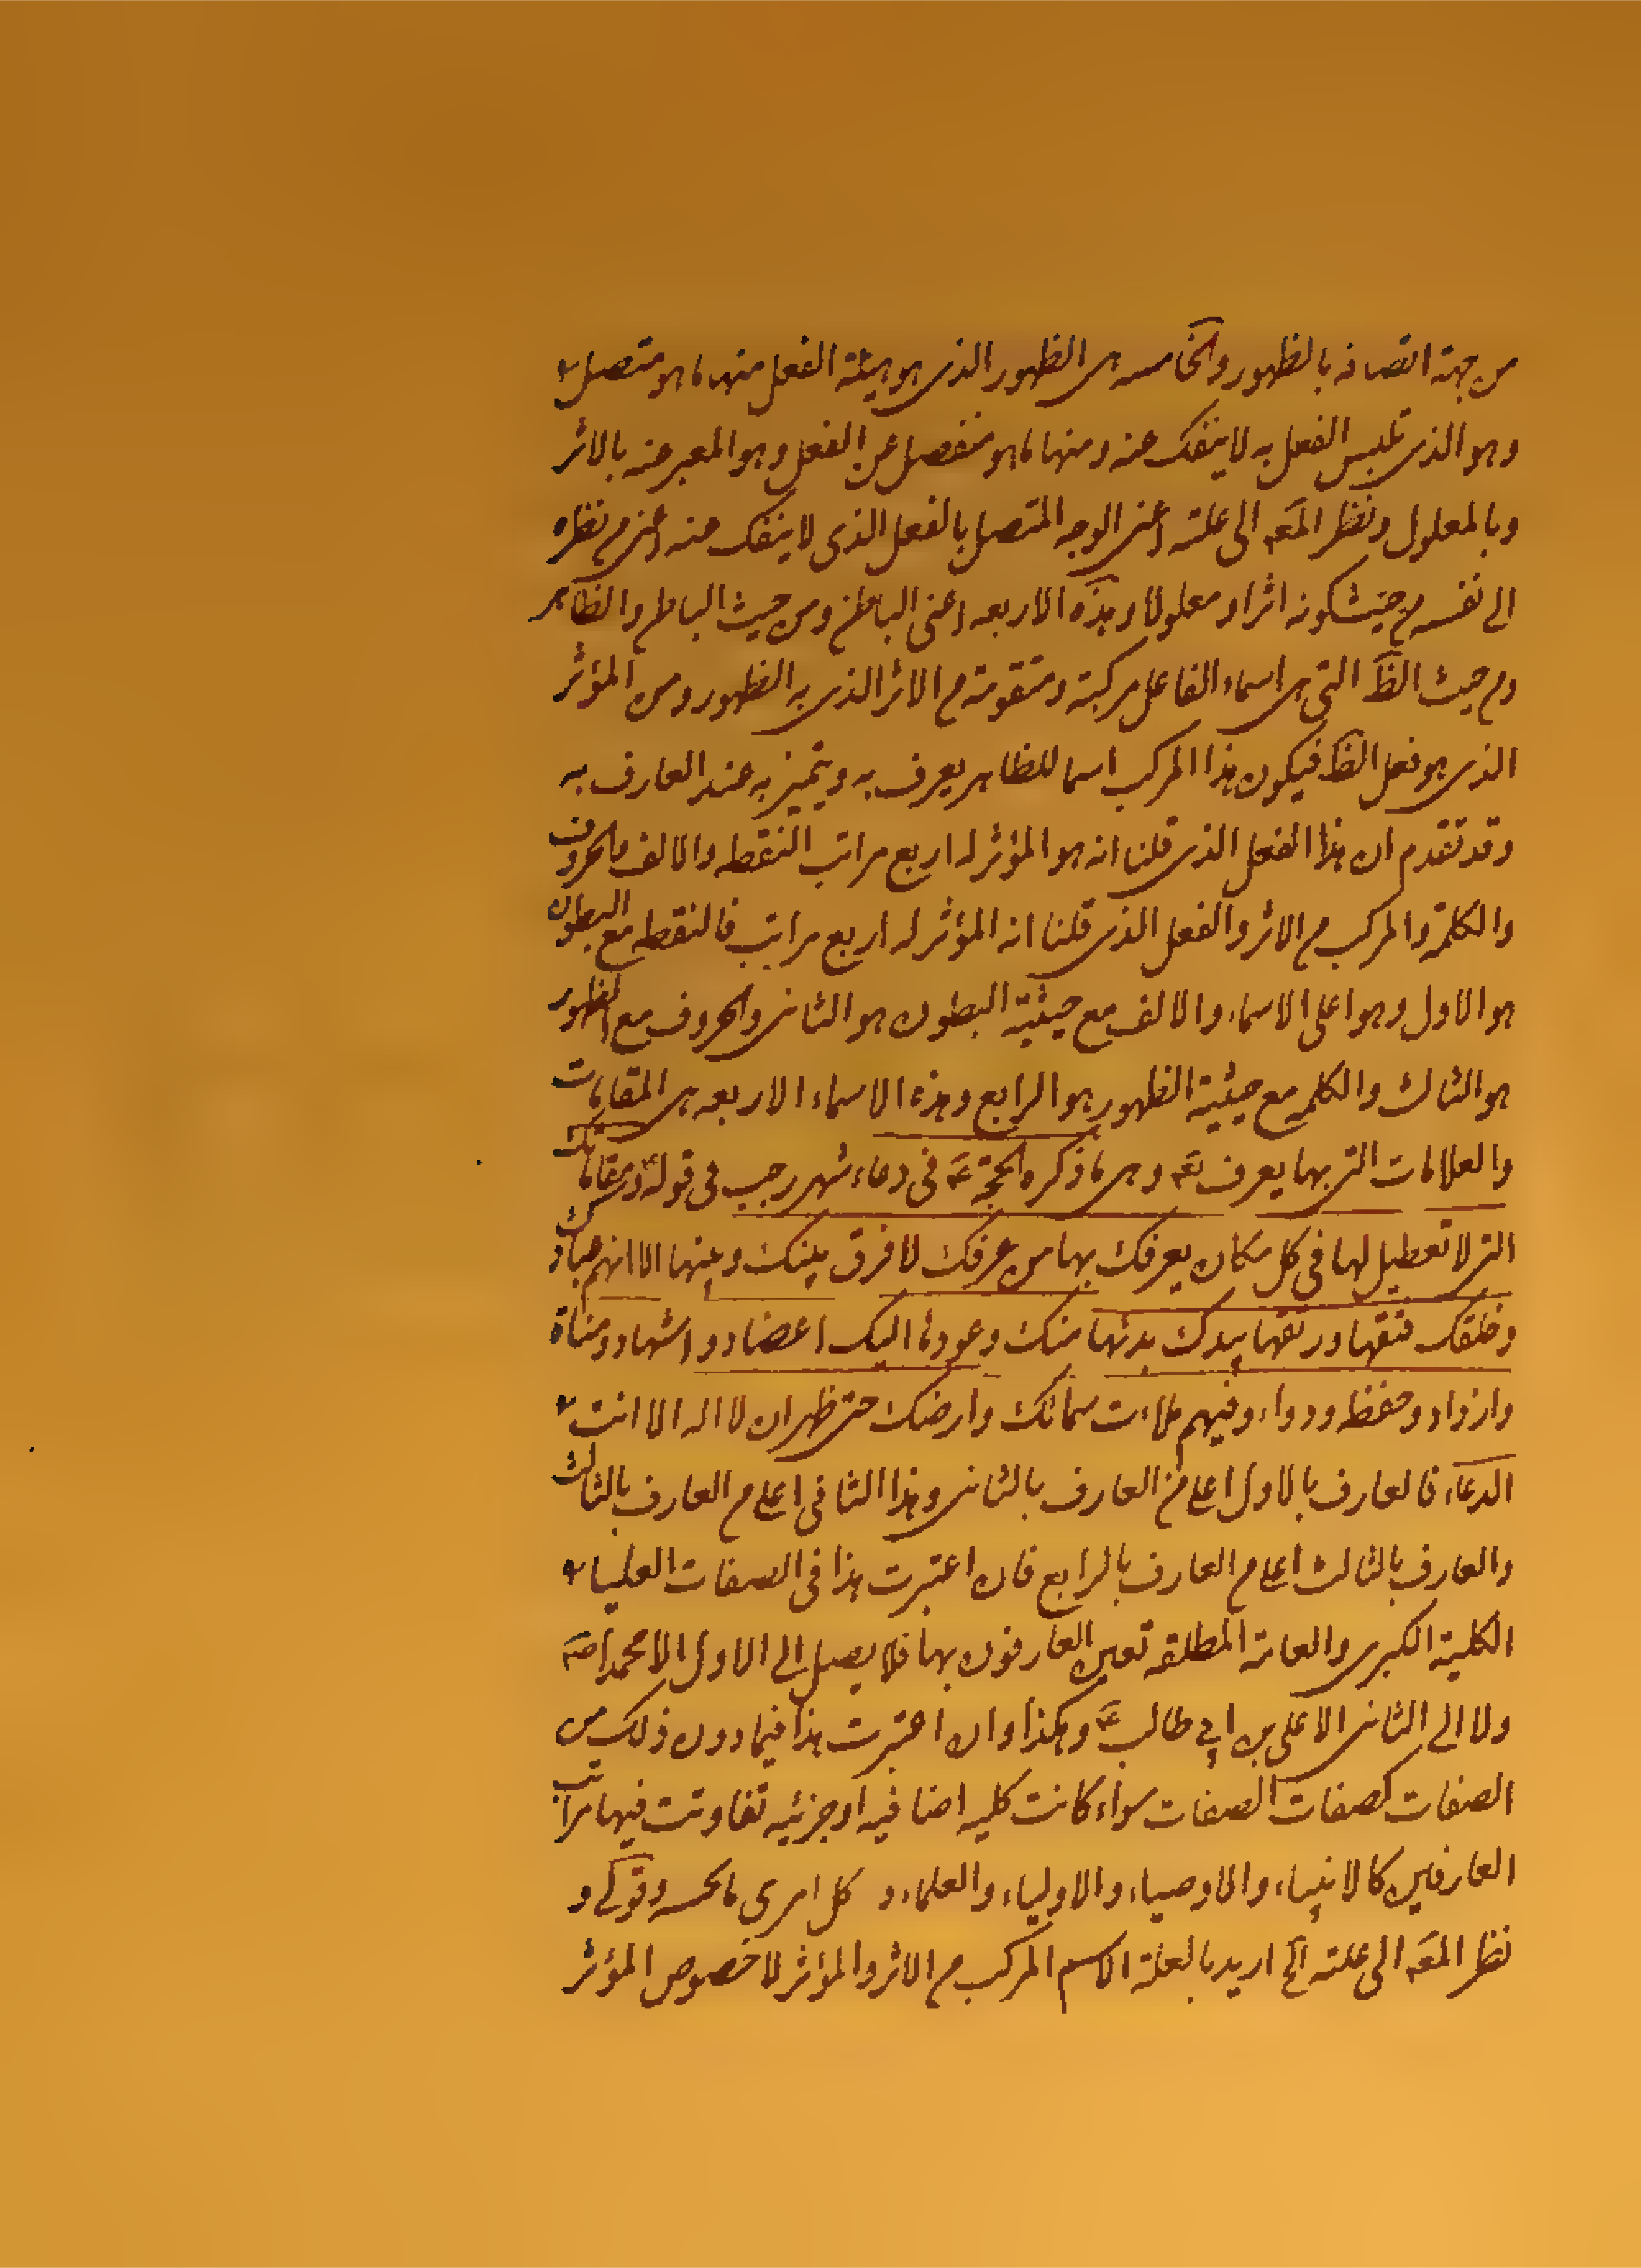 من جهة اتصافه بالظهور والخامسه هى الظهور الذى هو هيئة الفعل منها ما هو متصل
وهو الذى تلبس الفعل به لا ينفك عنه ومنها ما هو منفصل عن الفعل وهو المعبر عنه بالاثر
وبالمعلول ونظر المقه الى علته اعنى الوجه المتصل بالفعل الذى لا ينفك عنه اعنى من نظره
الى نفسه من حيث كونه اثرا ومعلولا وهذه الاربعه اعنى الباطن ومن حيث الباطن والظاهر
ومن حيث الظ التى هى اسماء الفاعل مركبة ومتقومة من الاثر الذى به الظهور ومن المؤثر
الذى هو فعل الظ فيكون هذا المركب اسما للظاهر يعرف به ويتميز به عند العارف به
وقد تقدم ان هذا الفعل الذى قلنا انه هو المؤثر له اربع مراتب النقطه والالف والحروف
والكلمة والمركب من الاثر والفعل الذى قلنا انه المؤثر له اربع مراتب فالنقطه مع البطون
هو الاول وهو اعلى الاسماء والالف مع حيثية البطون هو الثانى والحروف مع الظهور
هو الثالث والكلمه مع حيثية الظهور هو الرابع وهذه الاسماء الاربعه هى المقامات
والعلامات التى بها يعرف تعه وهى ما ذكره الحجة عه فى دعاء شهر رجب فى قوله ومقاماتك
التى لا تعطيل لها فى كل مكان يعرفك بها من عرفك لا فرق بينك وبينها الا انهم عبادك
وخلقك فتقها ورتقها بيدك بدئها منك وعودها اليك اعضاد واشهاد ومناة
وازواد وحفظه ورواد وفيهم ملاءت سمائك وارضك حتى ظهر ان لا اله الا انت
الدعاء فالعارف بالاول اعلم من العارف بالثانى وهذا الثانى اعلم من العارف بالثالث
والعارف بالثالث اعلم من العارف بالرابع فان اعتبرت هذا فى الصفات العليا
الكلية الكبرى والعامة المطلقه تعين العارفون بها فلا يصل الى الاول الا محمدا صه
ولا الى الثانى الا على بن ابى طالب عه وهكذا وان اعتبرت هذا فيما دون ذلك من
الصفات كصفات الصفات سواء كانت كليه اضافيه او جزئيه تفاوتت فيها مراتب
العارفين كالانبياء والاوصياء والاولياء والعلماء و كل امرى بحسبه وقولى و
نظر المقه الى علته الخ اريد بالعلة الاسم المركب من الاثر والمؤثر لا خصوص المؤثر